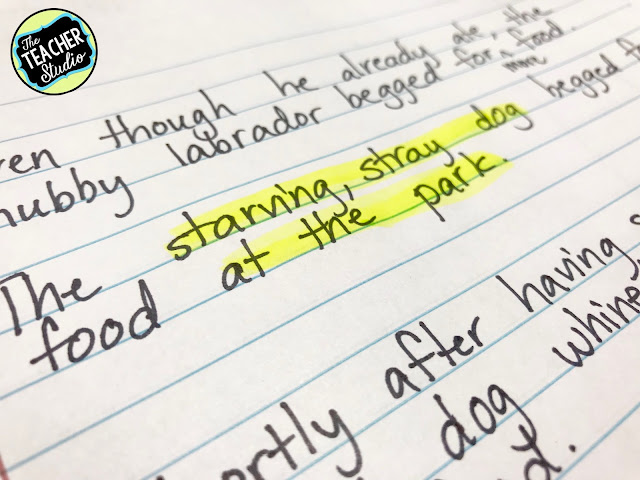 The
TEACHER
Studio
ven though he already ate, the
hubby labrador begged for more food.
The starving, stray dog begged f
food at the park.
ortly after having
dog whine